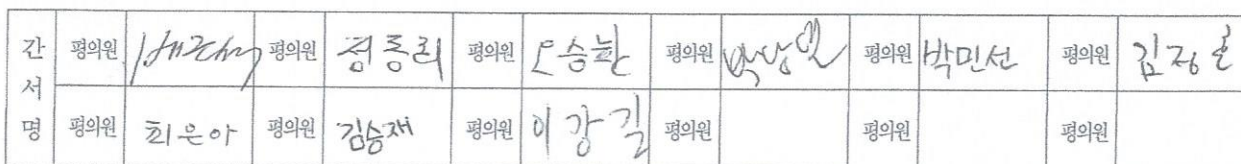 간 서 명
평의원 평의원 정동리 평의원 오승환 평의원 평의원 박민선 평의원 김정호
평의원 최은아 평의원 김승재 평의원 이강길 평의원 평의원 평의원